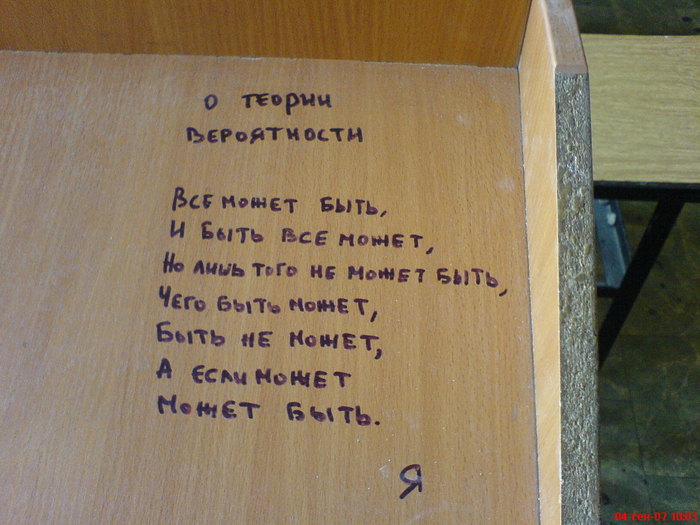 О ТЕОРИИ
ВЕРОЯТНОСТИ
ВСЕ МОЖЕТ БЫТЬ,
И БЫТЬ ВСЕ МОЖЕТ,
НО ЛИШЬ ТОГО НЕ МОЖЕТ БЫТЬ,
ЧЕГО БЫТЬ МОЖЕТ,
БЫТЬ НЕ МОЖЕТ,
А ЕСЛИ МОЖЕТ
МОЖЕТ БЫТЬ.
Я